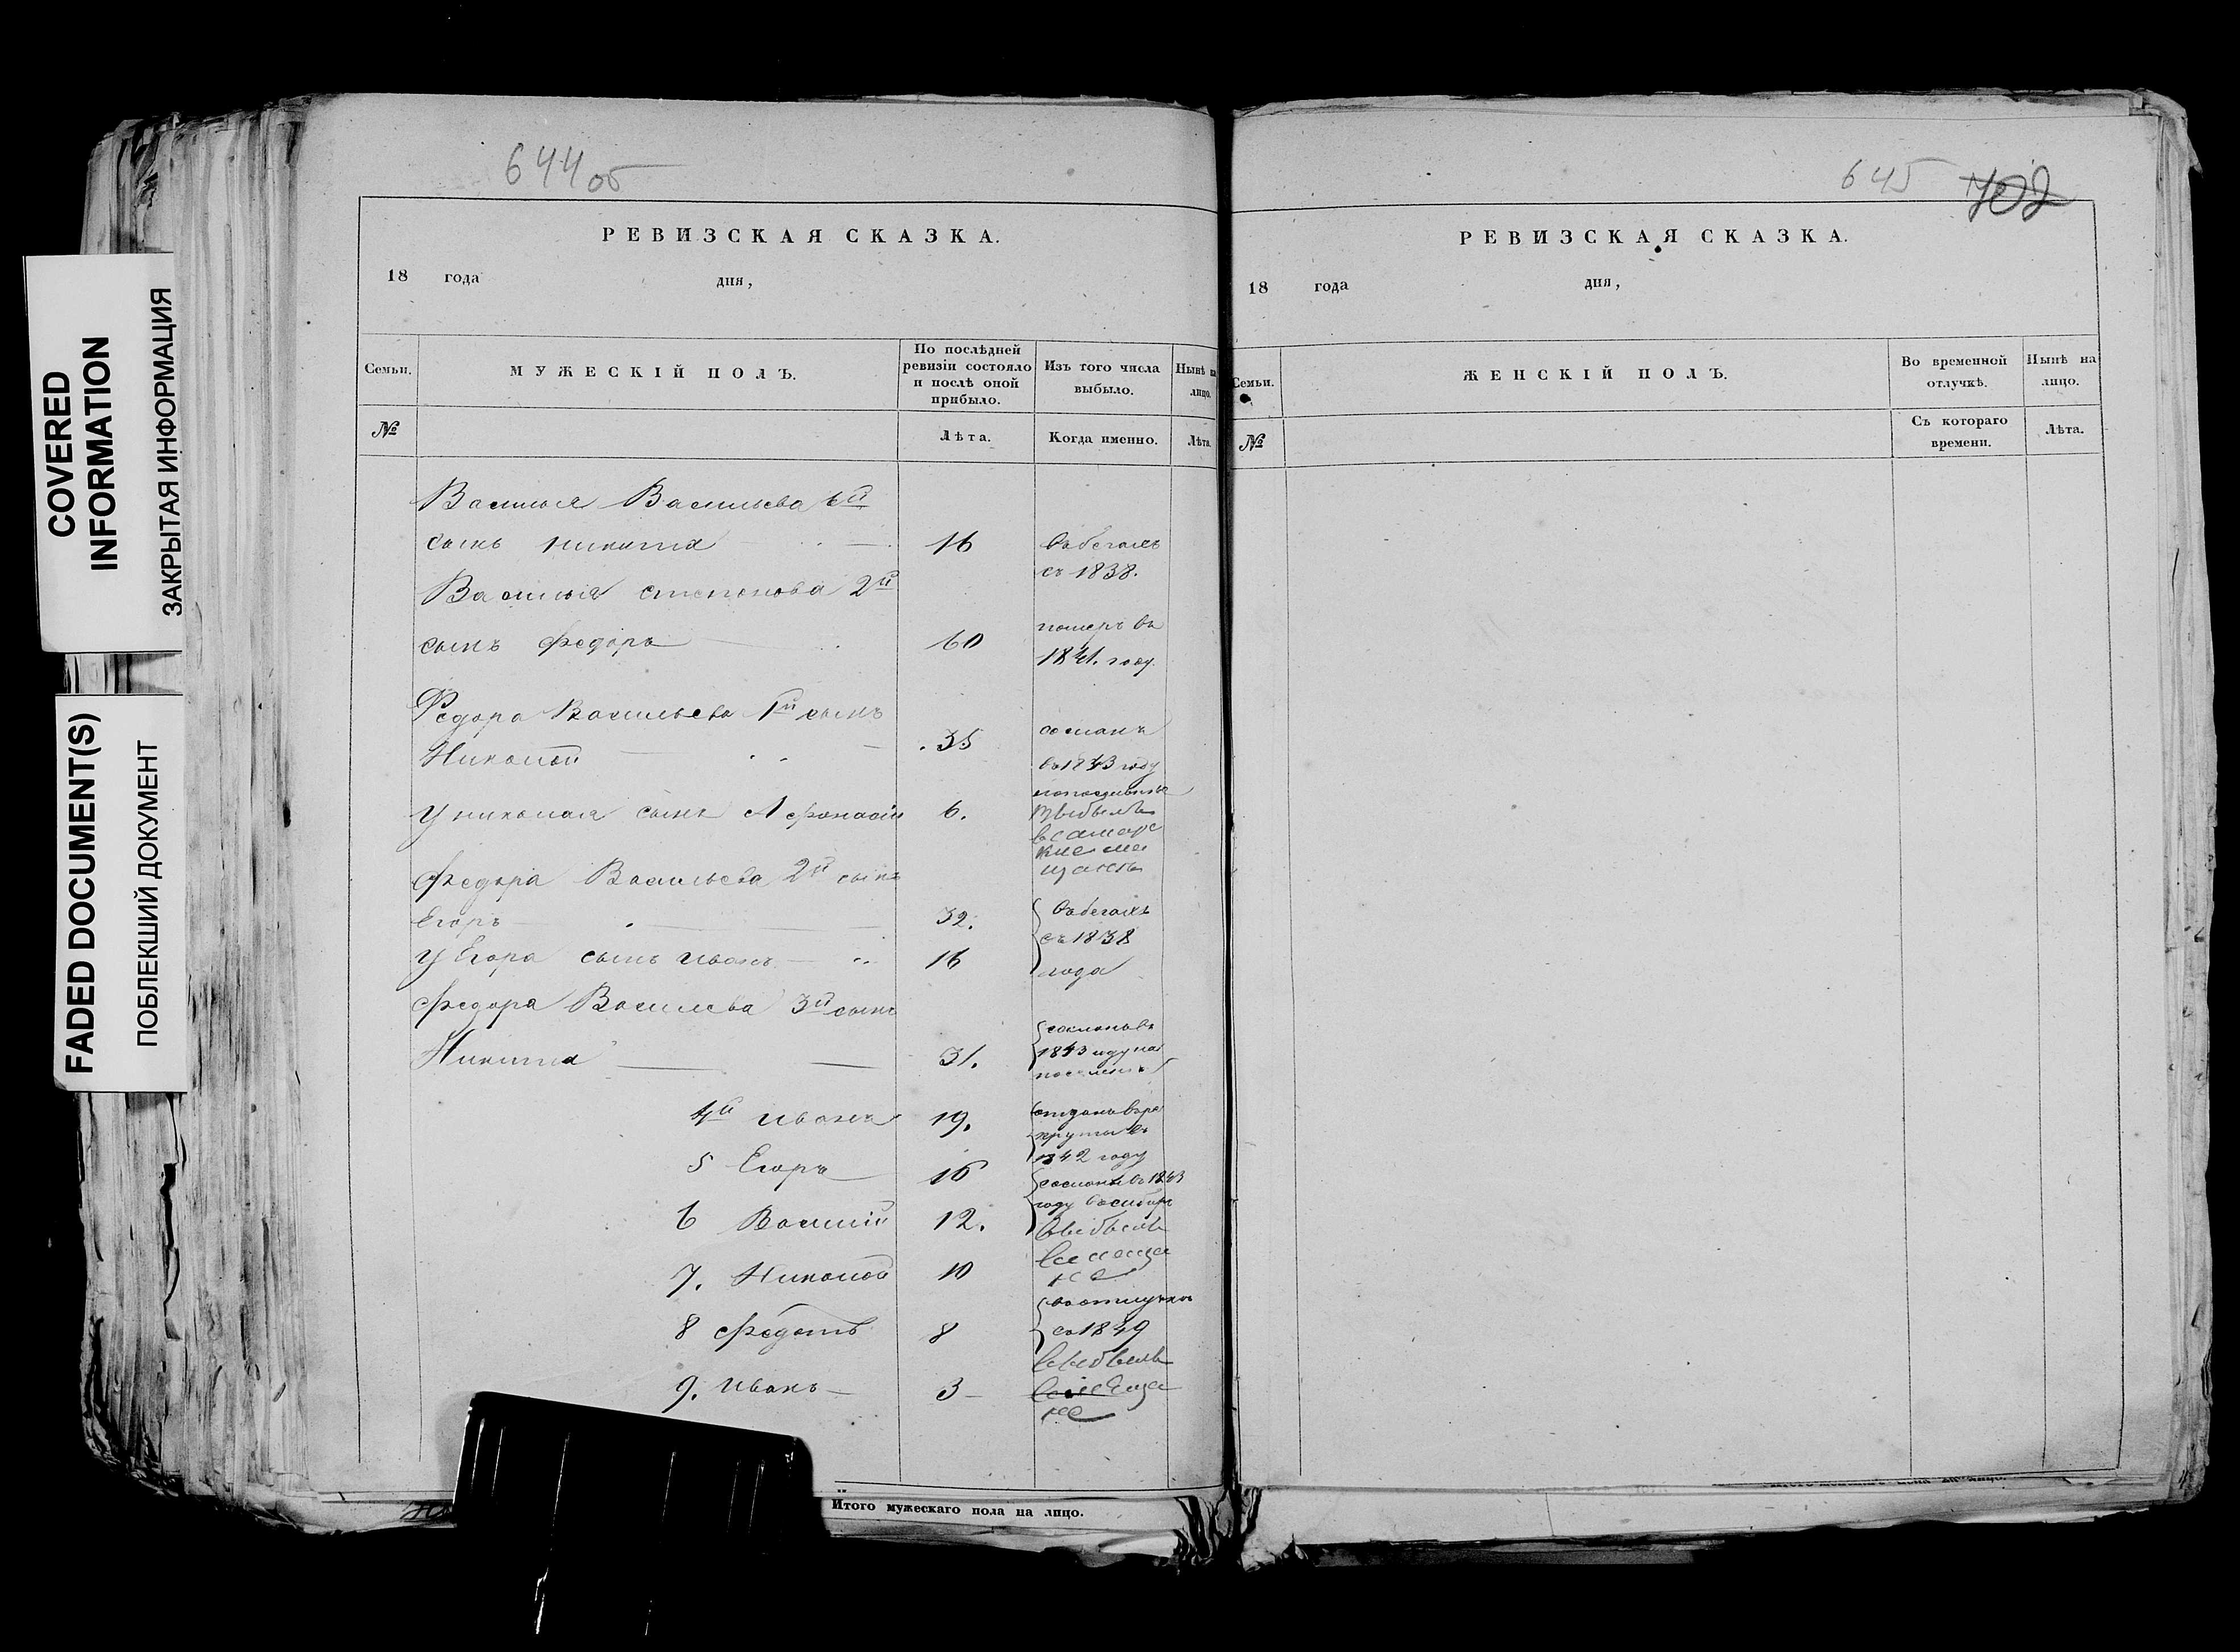 COVERED
INFORMATION
ЗАКРЫТАЯ ИНФОРМАЦИЯ
FADED DOCUMENT(S)
ПОБЛЕКШИЙ ДОКУМЕНТ
644об
РЕВИЗСКАЯ СКАЗКА.
18 года дня,
Семьи.
МУЖЕСКІЙ ПОЛЪ.
По послѣдней
ревизіи состояло
и послѣ оной
прибыло.
Изъ того числа
выбыло.
Нынѣ на
лицо.
№
Лѣта.
Когда именно.
Лѣта.
Василья Васильева 6й
сынъ Никита 16 въ бегахъ
съ 1838.
Василья Степонова 2й
сынъ Федоръ 60 померъ въ
1841. году
Федора Васильева 1й сынъ
Николай 35 сосланъ
въ 1843 году
У Николая сынъ Афонасій 6. выбылъ
въ самарс
кие ме
щанъ
Федора Васильева 2й сынъ
Егоръ 32. въ бегахъ
съ 1838
У Егора сынъ Иванъ 16 года
Федора Василева 3й сынъ
Никита 31. сосланъ въ
1843 году на
поселенъ
4й Иванъ 19. отданъ в ре
круты въ
1842 году
5 Егоръ 16 сосланъ въ 1843
году в сибирь
6 Василій 12. выбылъ
7. Николай 10
8 Федотъ 8 въ отлучки
съ 1849
выбылъ
9. Иванъ 3
Итого мужескаго пола на лицо.
645 702
РЕВИЗСКАЯ СКАЗКА.
18 года дня,
Семьи.
ЖЕНСКІЙ ПОЛЪ.
Во временной
отлучкѣ.
Нынѣ на
лицо.
№
Съ котораго
времени.
Лѣта.